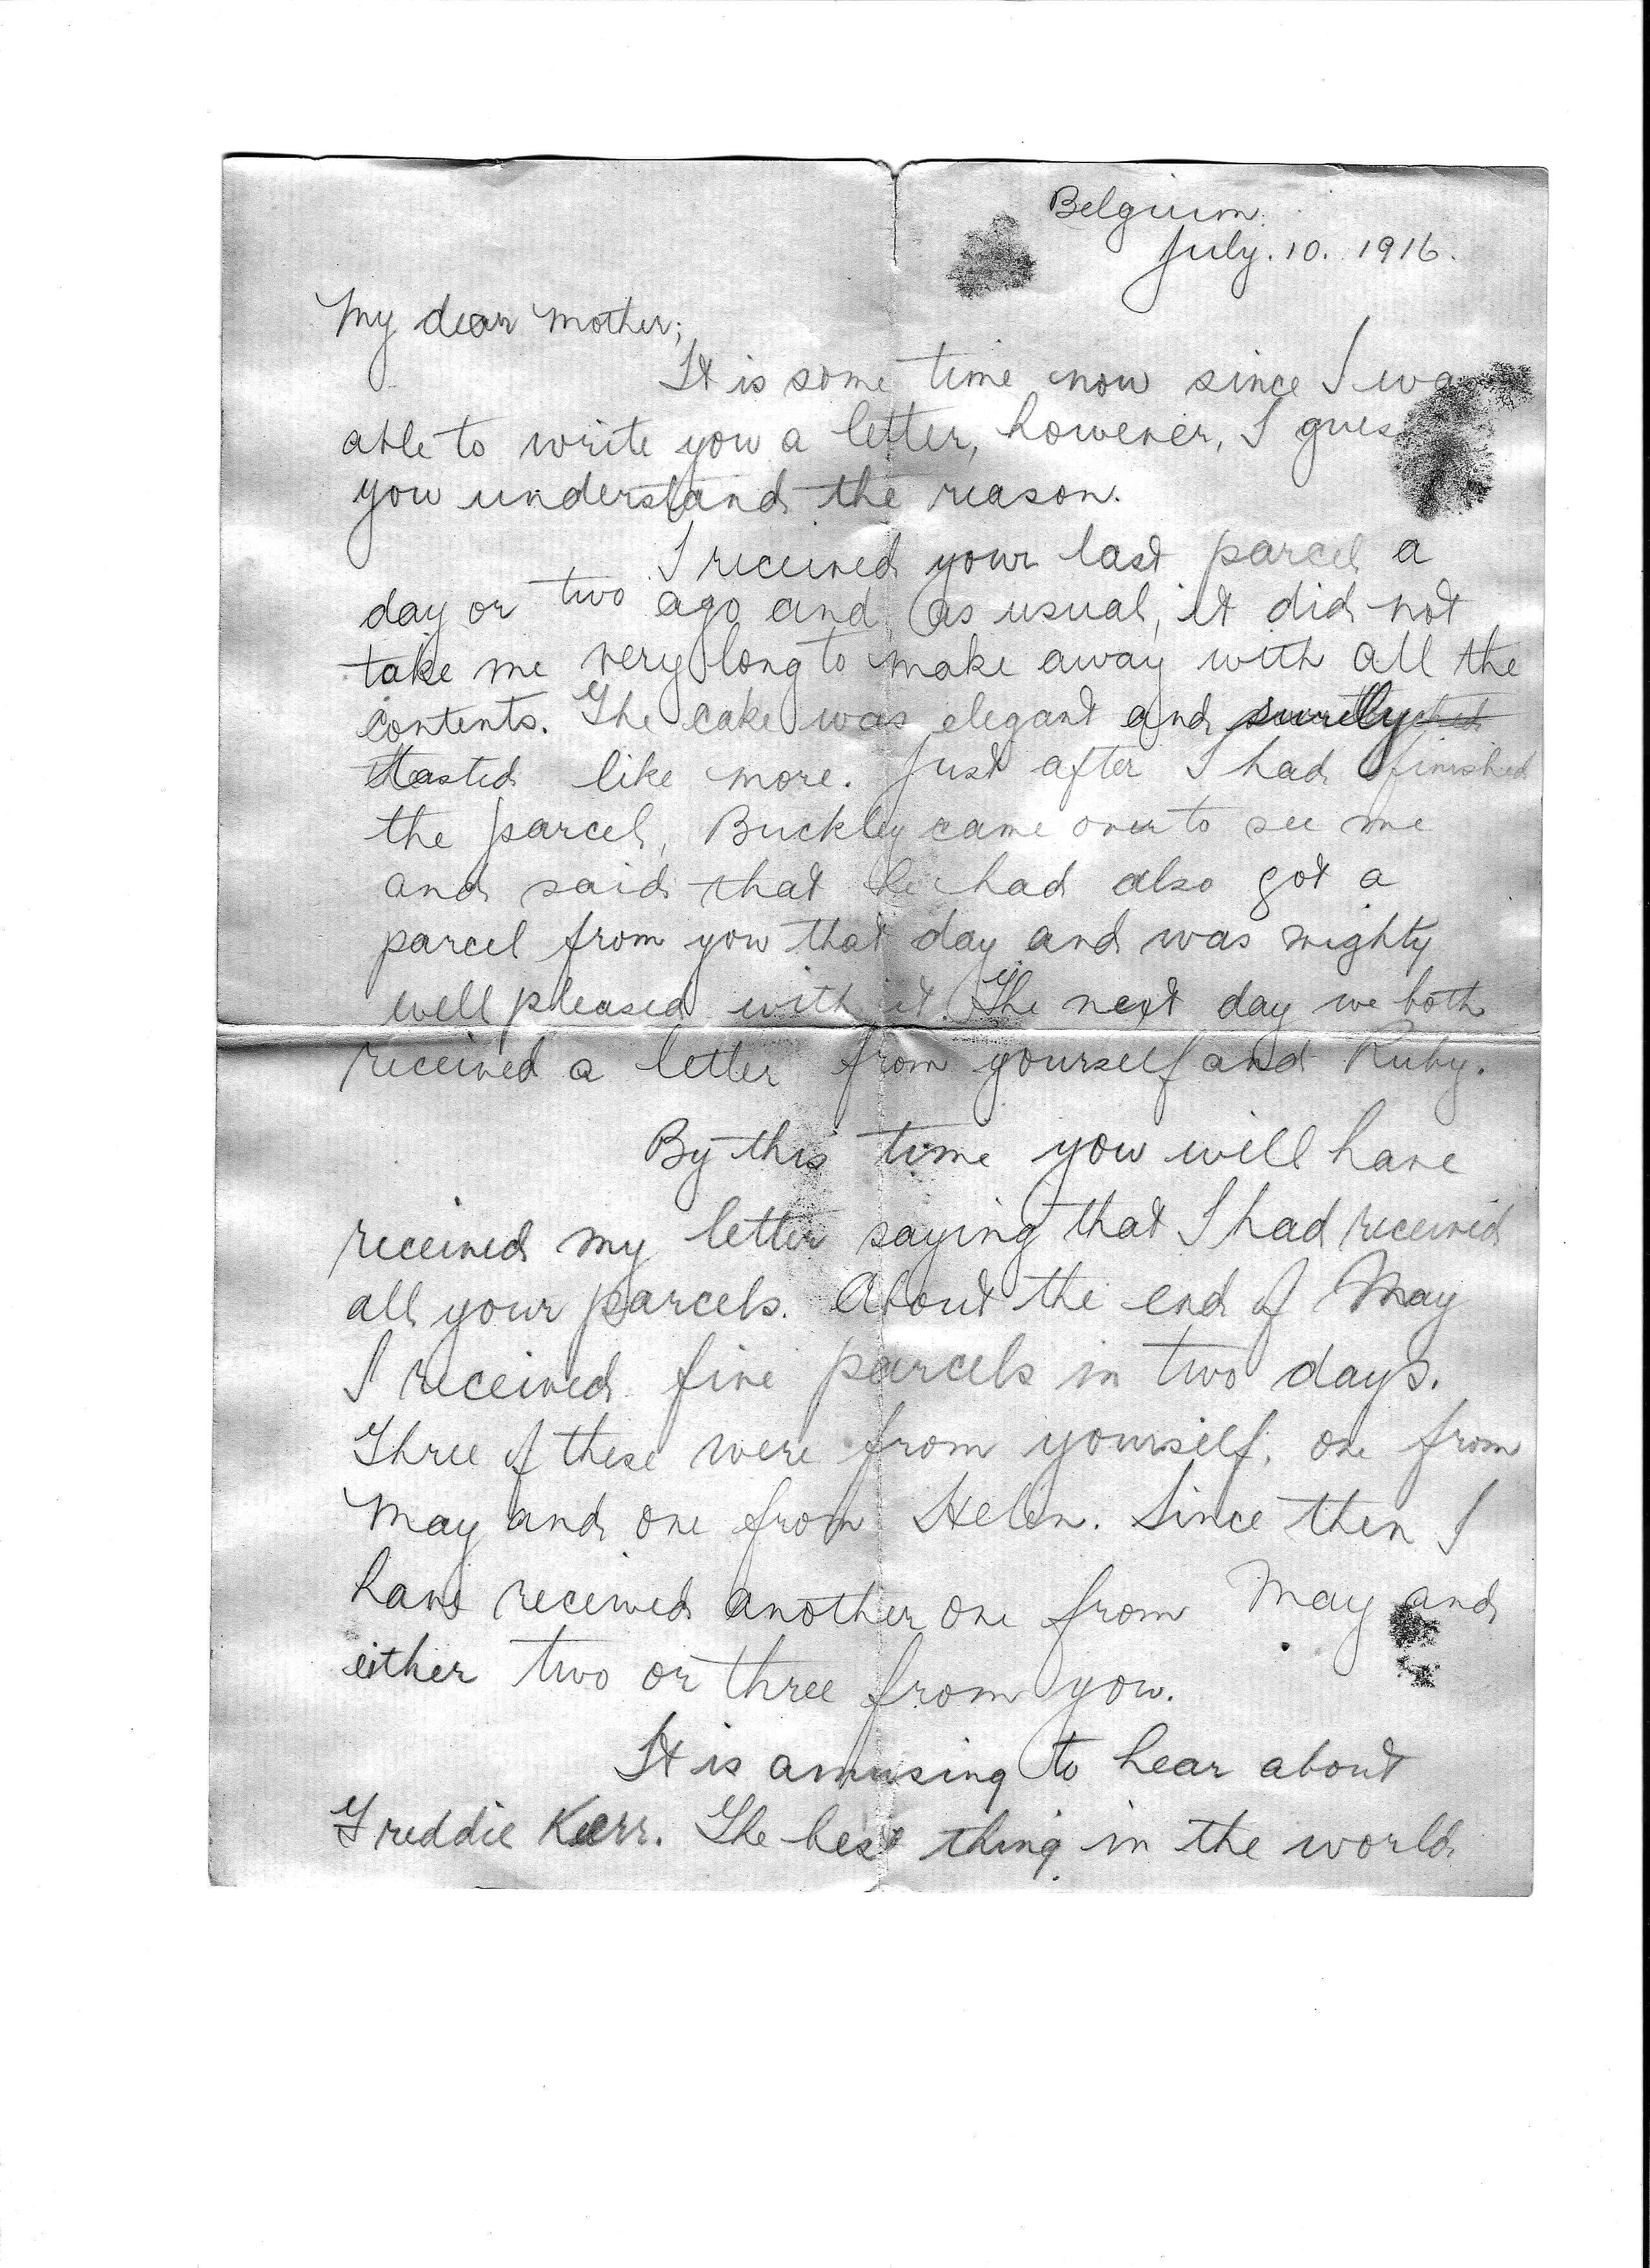 Belgium.
July. 10. 1916.
My dear Mother;
It is some time now since I was
able to write you a letter, however, I guess
you understand the reason.
I received your last parcel a
day or two ago and as usual, it did not
take me very long to make away with all the
contents. The cake was elegant and surely
tasted like more. Just after I had finished
the parcel, Buckley came over to see me
and said that he had also got a
parcel from you that day and was mighty
well pleased with it. The next day we both
received a letter from yourself and Ruby.
By this time you will have
received my letter saying that I had received
all your parcels. About the end of May
I received five parcels in two days.
Three of these were from yourself, one from
May and one from Helen. Since then I
have received another one from May and
either two or three from you.
It is amusing to hear about
Freddie Kerr. The best thing in the world